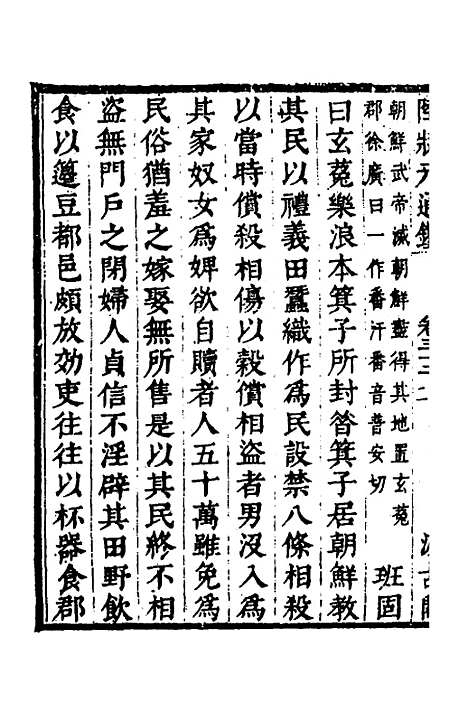 朝鮮武帝滅朝鮮盡得其地置玄菟
郡徐廣曰一作番汗番音普安切
班固
曰玄菟樂浪本箕子所封昝箕子居朝鮮教
其民以禮義田蠶織作爲民設禁八條相殺
以當時償殺相傷以穀償相盜者男沒入爲
其家奴女爲婢欲自贖者人五十萬雖免爲
民俗猶羞之嫁娶無所售是以其民終不相
盜無門戶之閉婦人貞信不淫辟其田野飲
食以籩豆都邑頗放効吏往往以杯器食郡